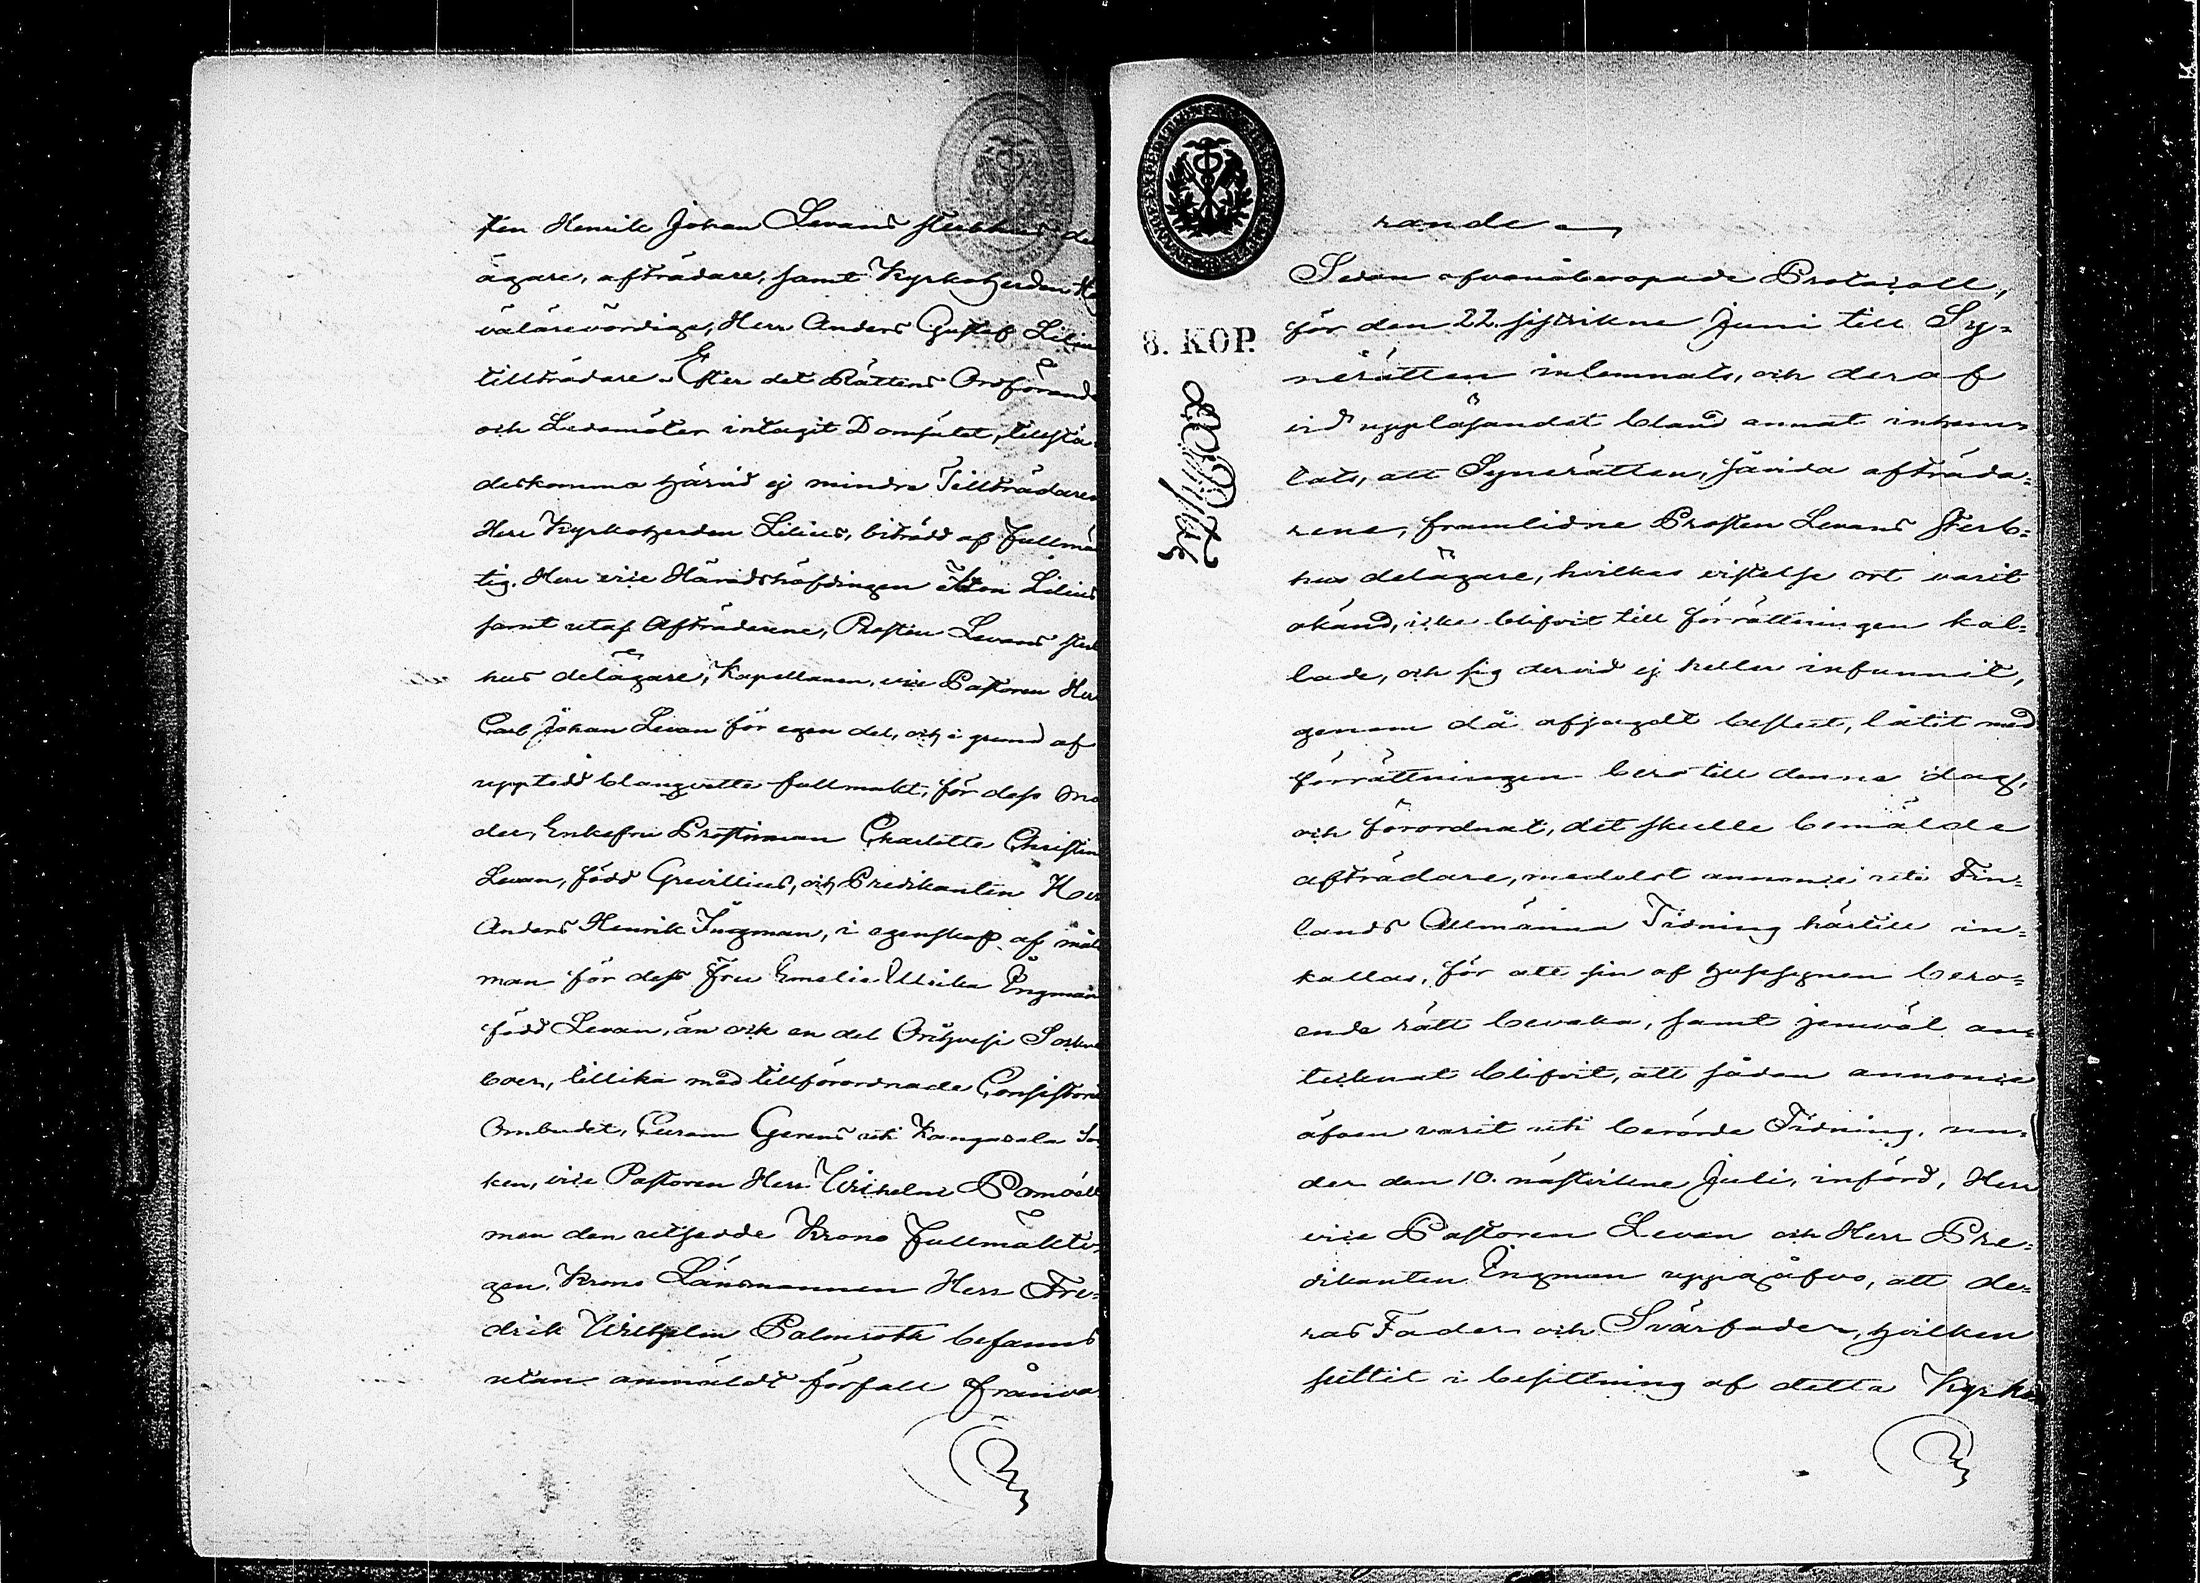 sten Henrik Johan Levans sterbhus del
ägare, afträdare, samt Kyrkoherden Hög
välärevördige, Herr Anders Gustaf Lilius
tillträdare. Efter det Rättens Ordförande
och Ledamöter intagit Domsätet, tillstä-
deskomma härvid ej mindre Tillträdaren
Herr Kyrkoherden Lilius, biträdd af Fullmäk
tig. Herr vice Häradshöfdingen Lilius
samt utaf Afträdarene, Prosten Levans sterb
hus delägare, Kapellanen, vice Pastoren Herr
Carl Johan Levan för egen del, och i grund af
upptedd blanqvette fullmakt, för dess Mo
der, Enkefru Prostinnan Charlotta Christina
Levan, född Grevillius, och Predikanten Herr
Anders Henrik Ingman, i egenskap af måls
man för dess Fru Emelie Ulrika Ingman
född Levan, än ock en del Orihvesi Sockne
boer, tillika med tillförordnade Consistorii
Ombudet, Curam Gerens uti Kangasala Soc
ken, vice Pastoren Herr Wilhelm Pomoell
men den utsedde Krono Fullmäkti-
gen, Krono Länsmannen Herr Fre-
drik Wilhelm Palmroth befanns
utan anmäldt förfall frånva-
rande
8. KOP.
Sedan ofvanåberopade Protocoll,
för den 22. sistvikne Juni till Sy-
nerätten inlemnats, och deraf
vid uppläsandet bland annat inhem-
tats, att Synerätten, såvida afträda-
rene, framlidne Prosten Levans Sterb-
hus delägare, hvilkas vistelse ort varit
okänd, icke blifvit till förrättningen kal-
lade, och sig dervid ej heller infunnit,
genom då afsagdt beslut, låtit med
förrättningen bero till denna dag,
och förordnat, det skulle bemälde
afträdare, medelst annonce uti Fin-
lands Allmänna Tidning härtill in-
kallas, för att sin af husesynen bero-
ende rätt bevaka, samt jemväl an-
tecknat blifvit, att sådan annonce
äfven varit uti berörde Tidning, un-
der den 10. nästvikne Juli, införd, Herr
vice Pastoren Levan och Herr Pre-
dikanten Ingman uppgåfvo, att de-
ras Fader och Svärfader, hvilken
suttit i besittning af detta Kyrko